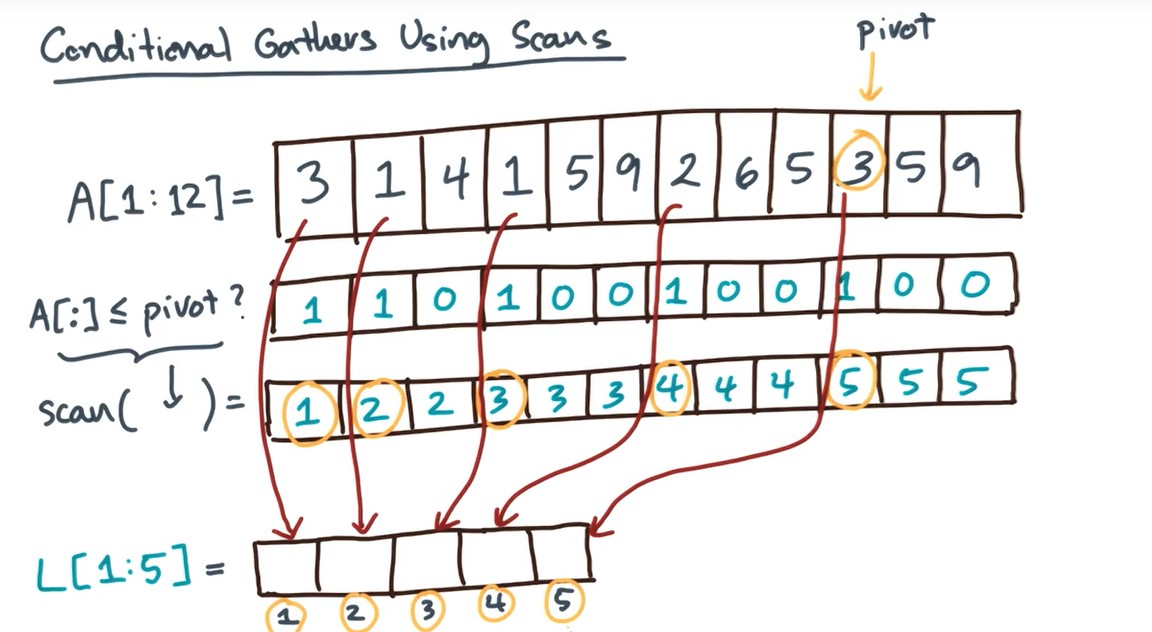 Conditional Gathers Using Scans
pivot
A[1:12]= 3 1 4 1 5 9 2 6 5 3 5 9
A[:] ≤ pivot? 1 1 0 1 0 0 1 0 0 1 0 0
scan( ↓ )= 1 2 2 3 3 3 4 4 4 5 5 5
L[1:5]=
1 2 3 4 5